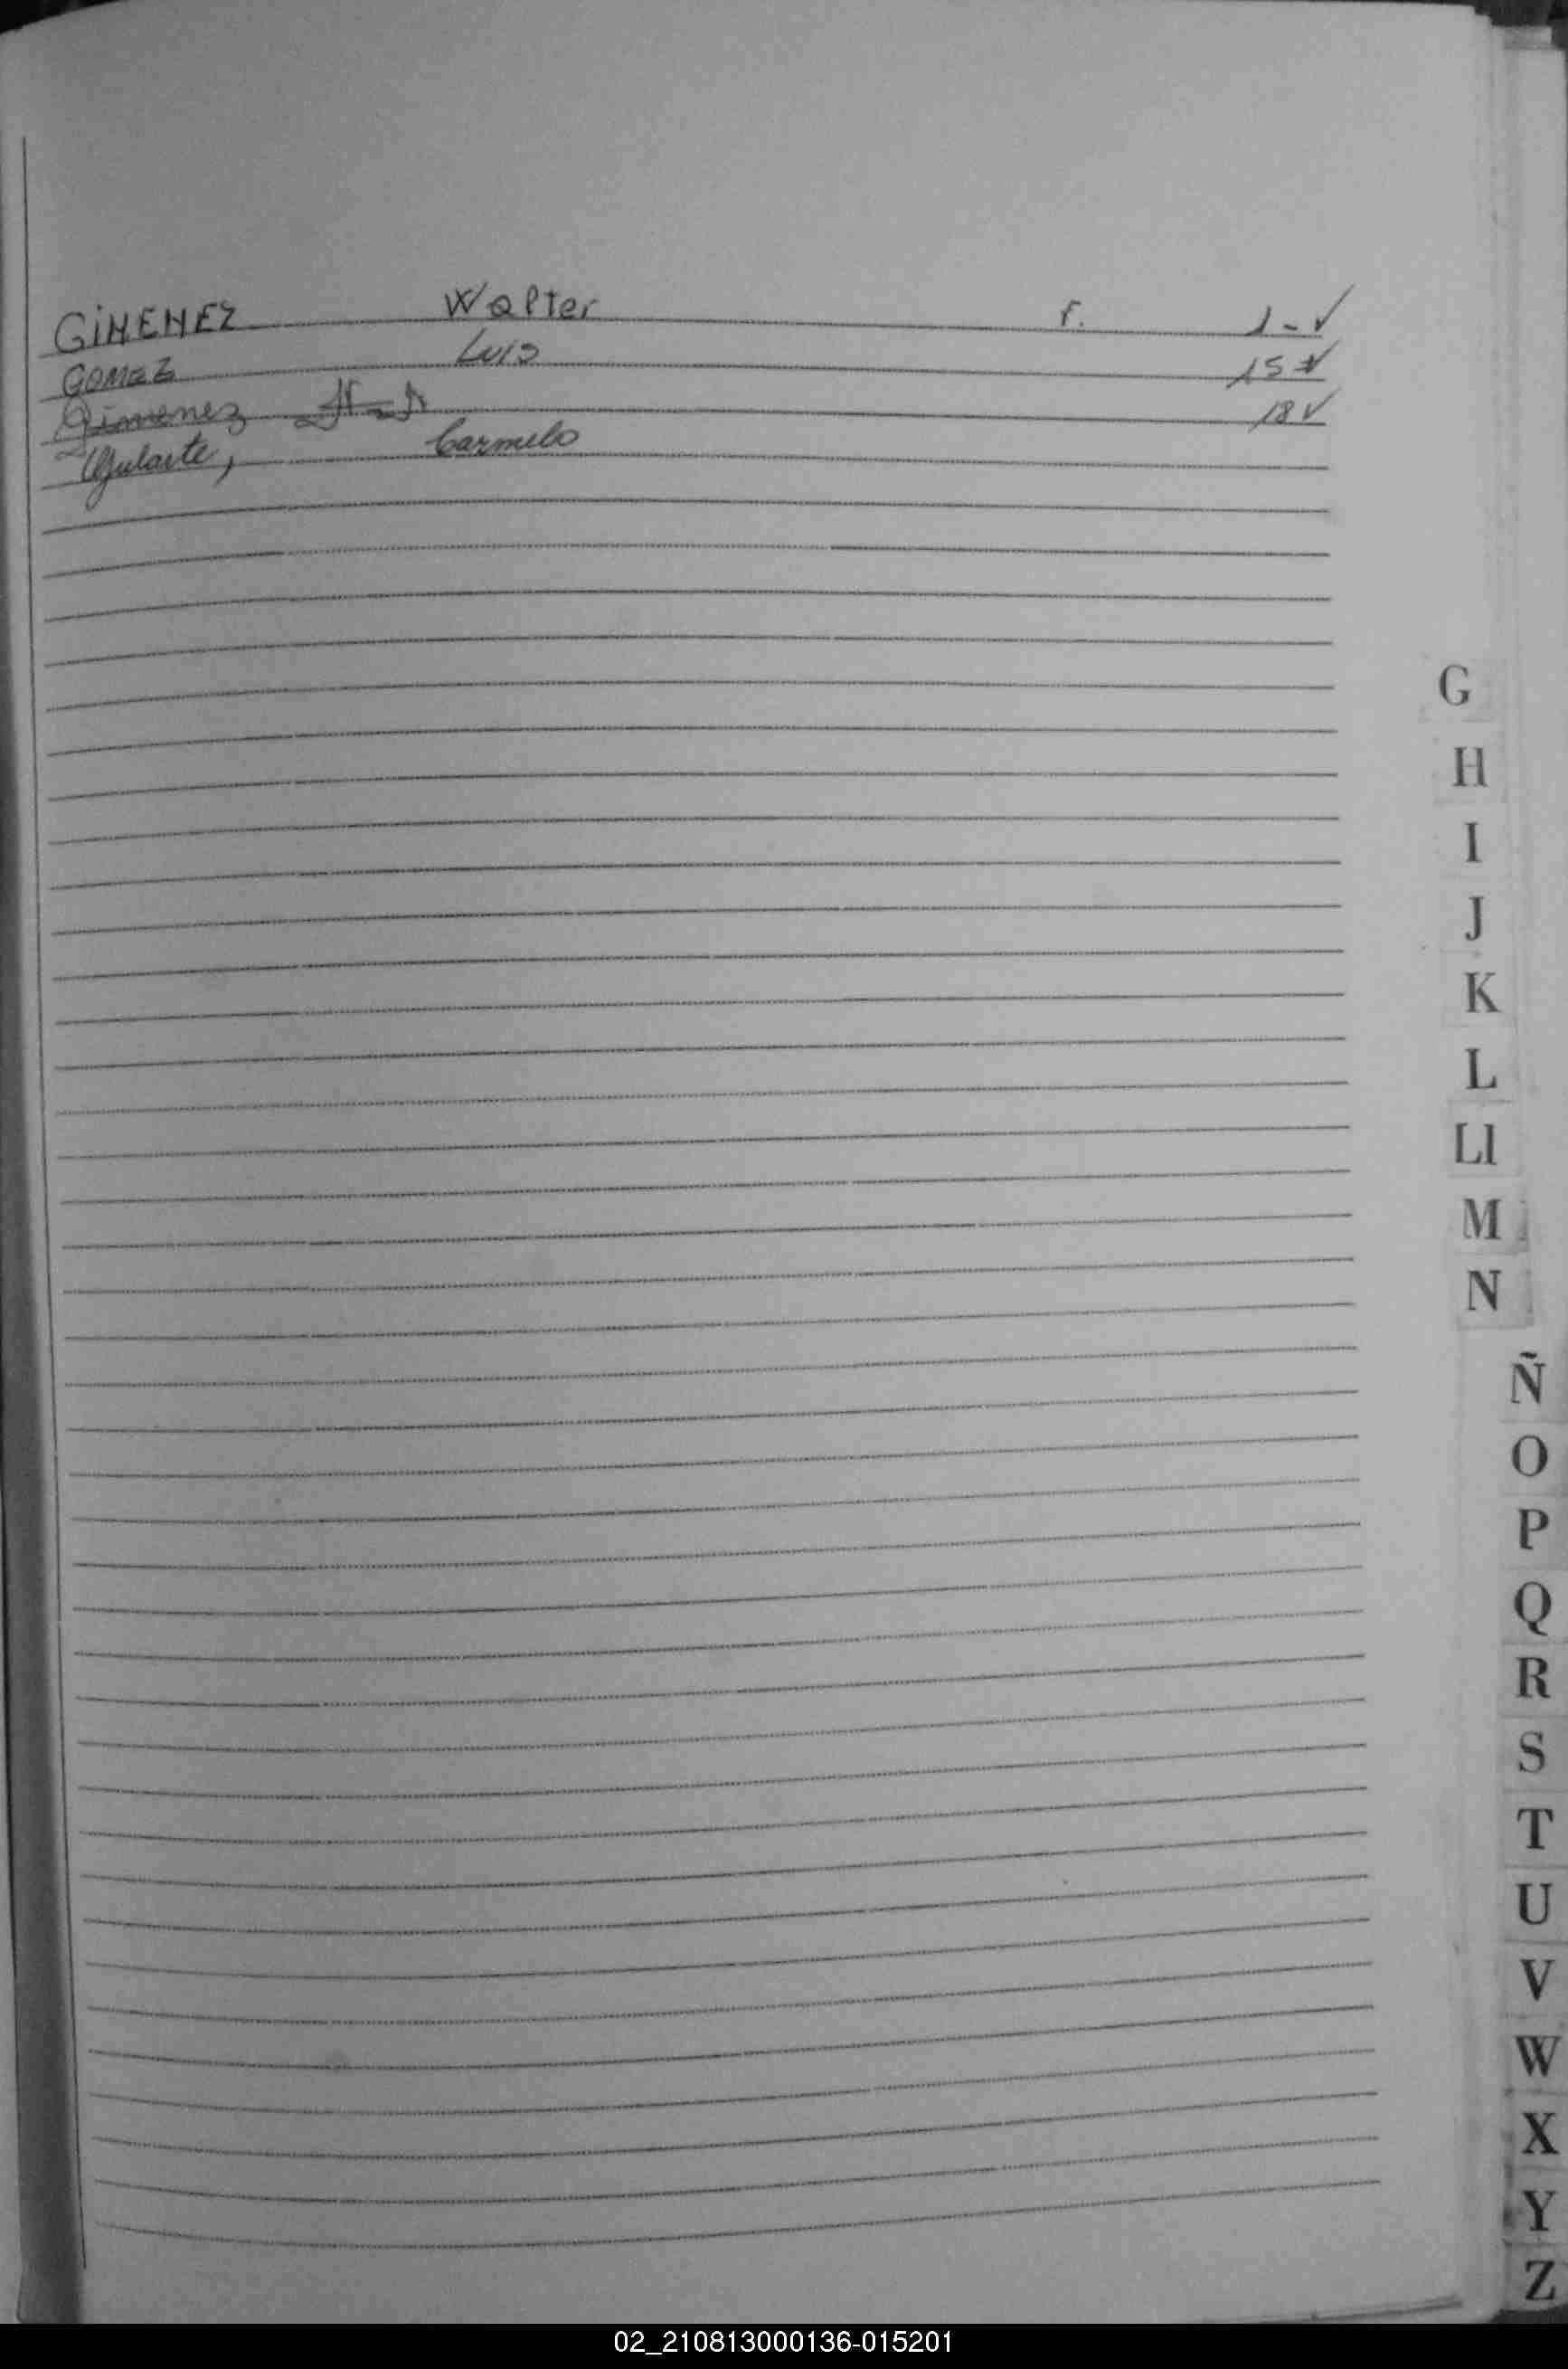 GIMENEZ Walter F. 1-✓
GOMEZ Luis 15 ✓
Gimenez 18 ✓
Gularte, Carmelo
G
H
I
J
K
L
Ll
M
N
Ñ
O
P
Q
R
S
T
U
V
W
X
Y
Z
02_210813000136-015201